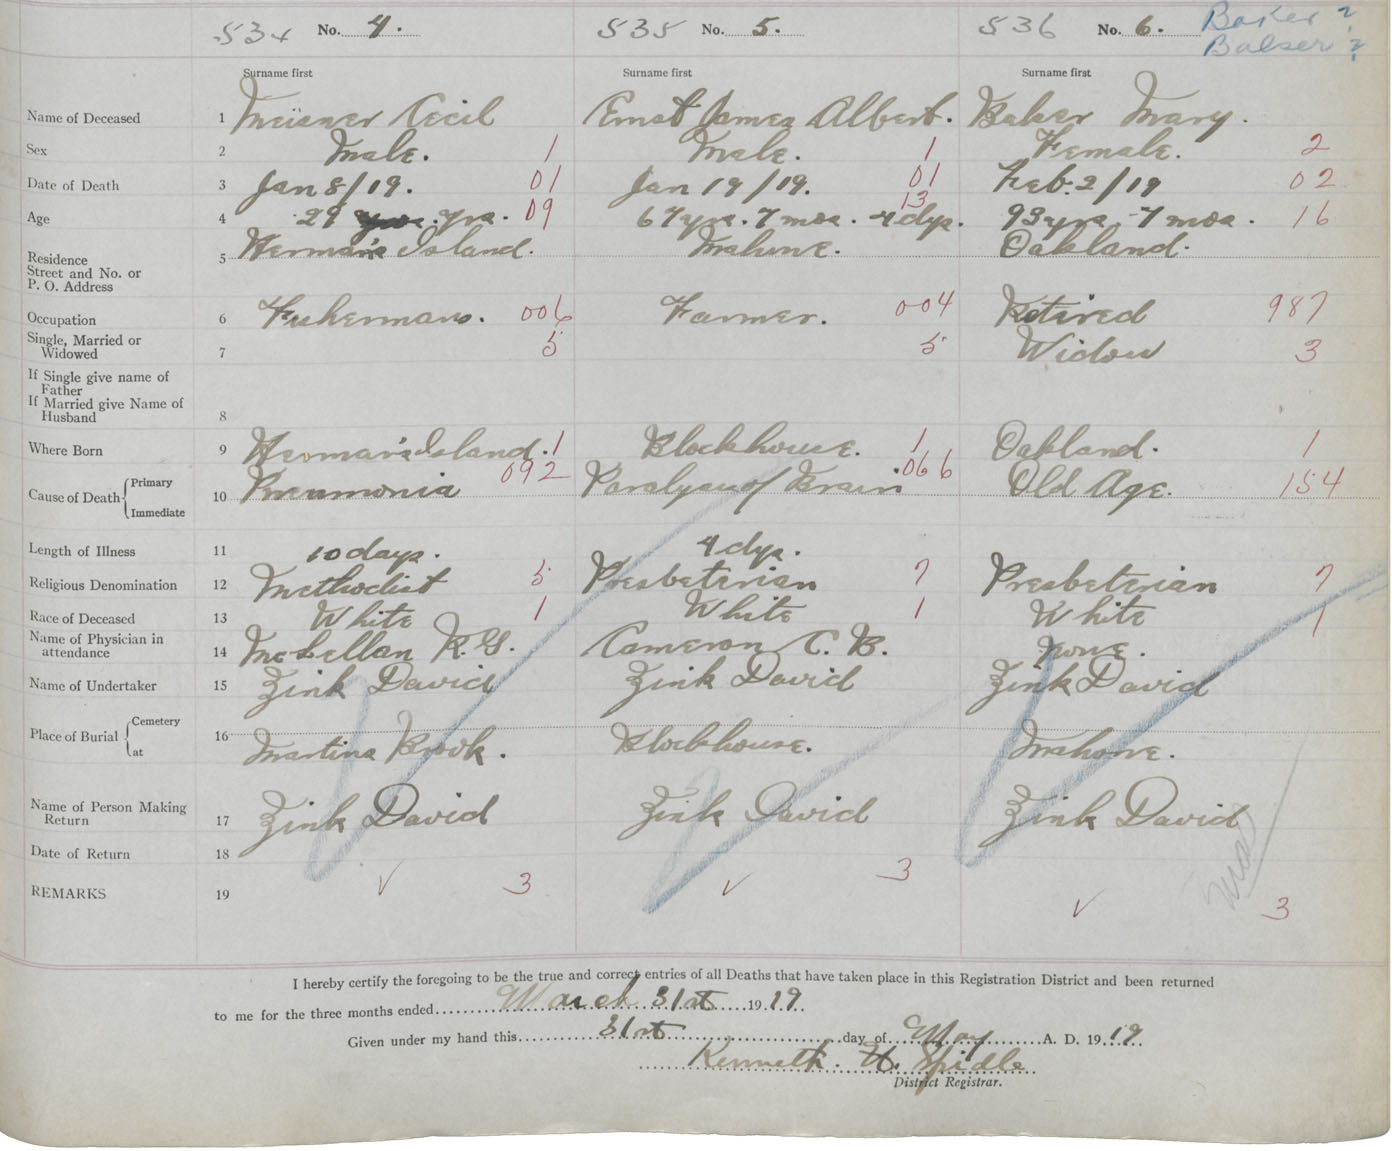 534 No. 4. 535 No. 5. 536 No. 6. Baker ?
Balser ?
Surname first Surname first Surname first
Name of Deceased 1 Meisner Cecil Ernst James Albert. Baker Mary.
Sex 2 Male. 1 Male. 1 Female. 2
Date of Death 3 Jan 8/19. 01 Jan 19/19. 01 Feb. 2/19 02
Age 4 29 yrs. 09 67 yrs. 7 mos. 4 dys. 13 93 yrs 7 mos. 16
Residence
Street and No. or
P. O. Address 5 Herman's Island. Mahone. Oakland.
Occupation 6 Fisherman. 006 Farmer. 004 Retired 987
Single, Married or
Widowed 7 5 5 Widow 3
If Single give name of
Father
If Married give Name of
Husband 8
Where Born 9 Herman's Island. 1 Blockhouse. 1 Oakland. 1
Cause of Death Primary
Immediate 10 Pneumonia 092 Paralysis of Brain 066 Old Age. 154
Length of Illness 11 10 days. 4 dys.
Religious Denomination 12 Methodist 5 Presbeterian 7 Presbeterian 7
Race of Deceased 13 White 1 White 1 White 1
Name of Physician in
attendance 14 McLellan R. G. Cameron C. B. None.
Name of Undertaker 15 Zink David Zink David Zink David
Place of Burial Cemetery
at 16 Martins Brook. Blockhouse. Mahone.
Name of Person Making
Return 17 Zink David Zink David Zink David
Date of Return 18
REMARKS 19 ✓ 3 ✓ 3 ✓ 3
I hereby certify the foregoing to be the true and correct entries of all Deaths that have taken place in this Registration District and been returned
to me for the three months ended March 31st 1919.
Given under my hand this 31st day of May A. D. 1919
Kenneth. H. Spidle
District Registrar.